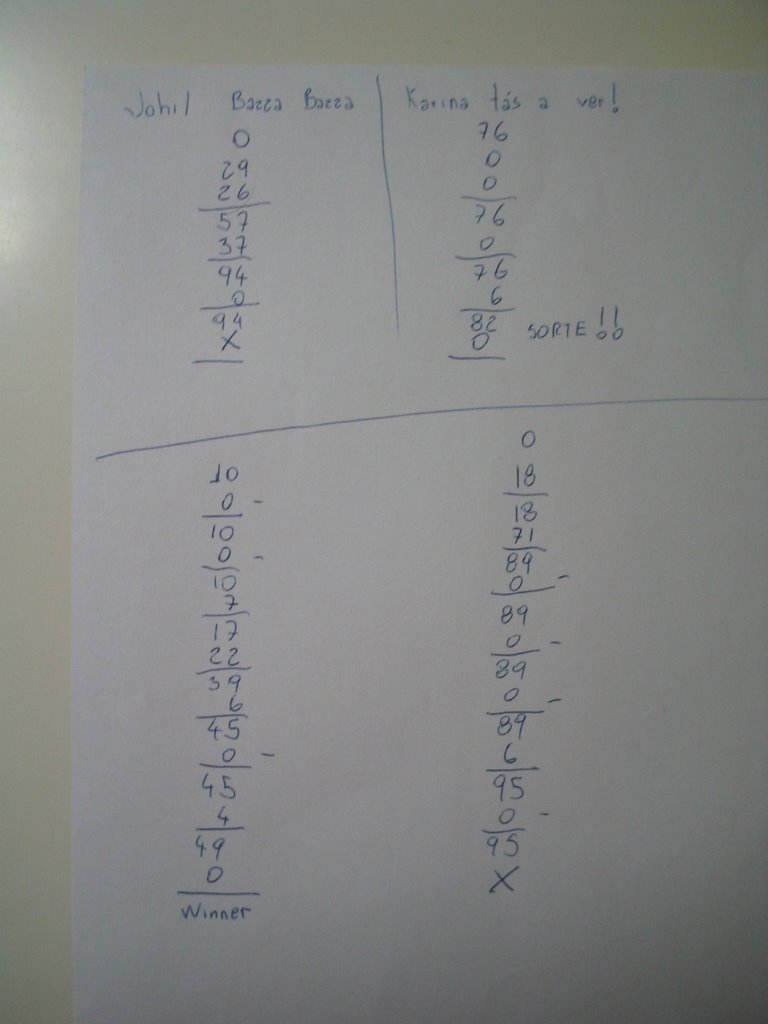 Johil Bazza Bazza
0
29
26
57
37
94
0
94
X
Karina tás a ver!
76
0
0
76
0
76
6
82 SORTE!!
0
10
0 -
10
0 -
10
7
17
22
39
6
45
0 -
45
4
49
0
Winner
0
18
18
71
89
0 -
89
0 -
89
0 -
89
6
95
0 -
95
X